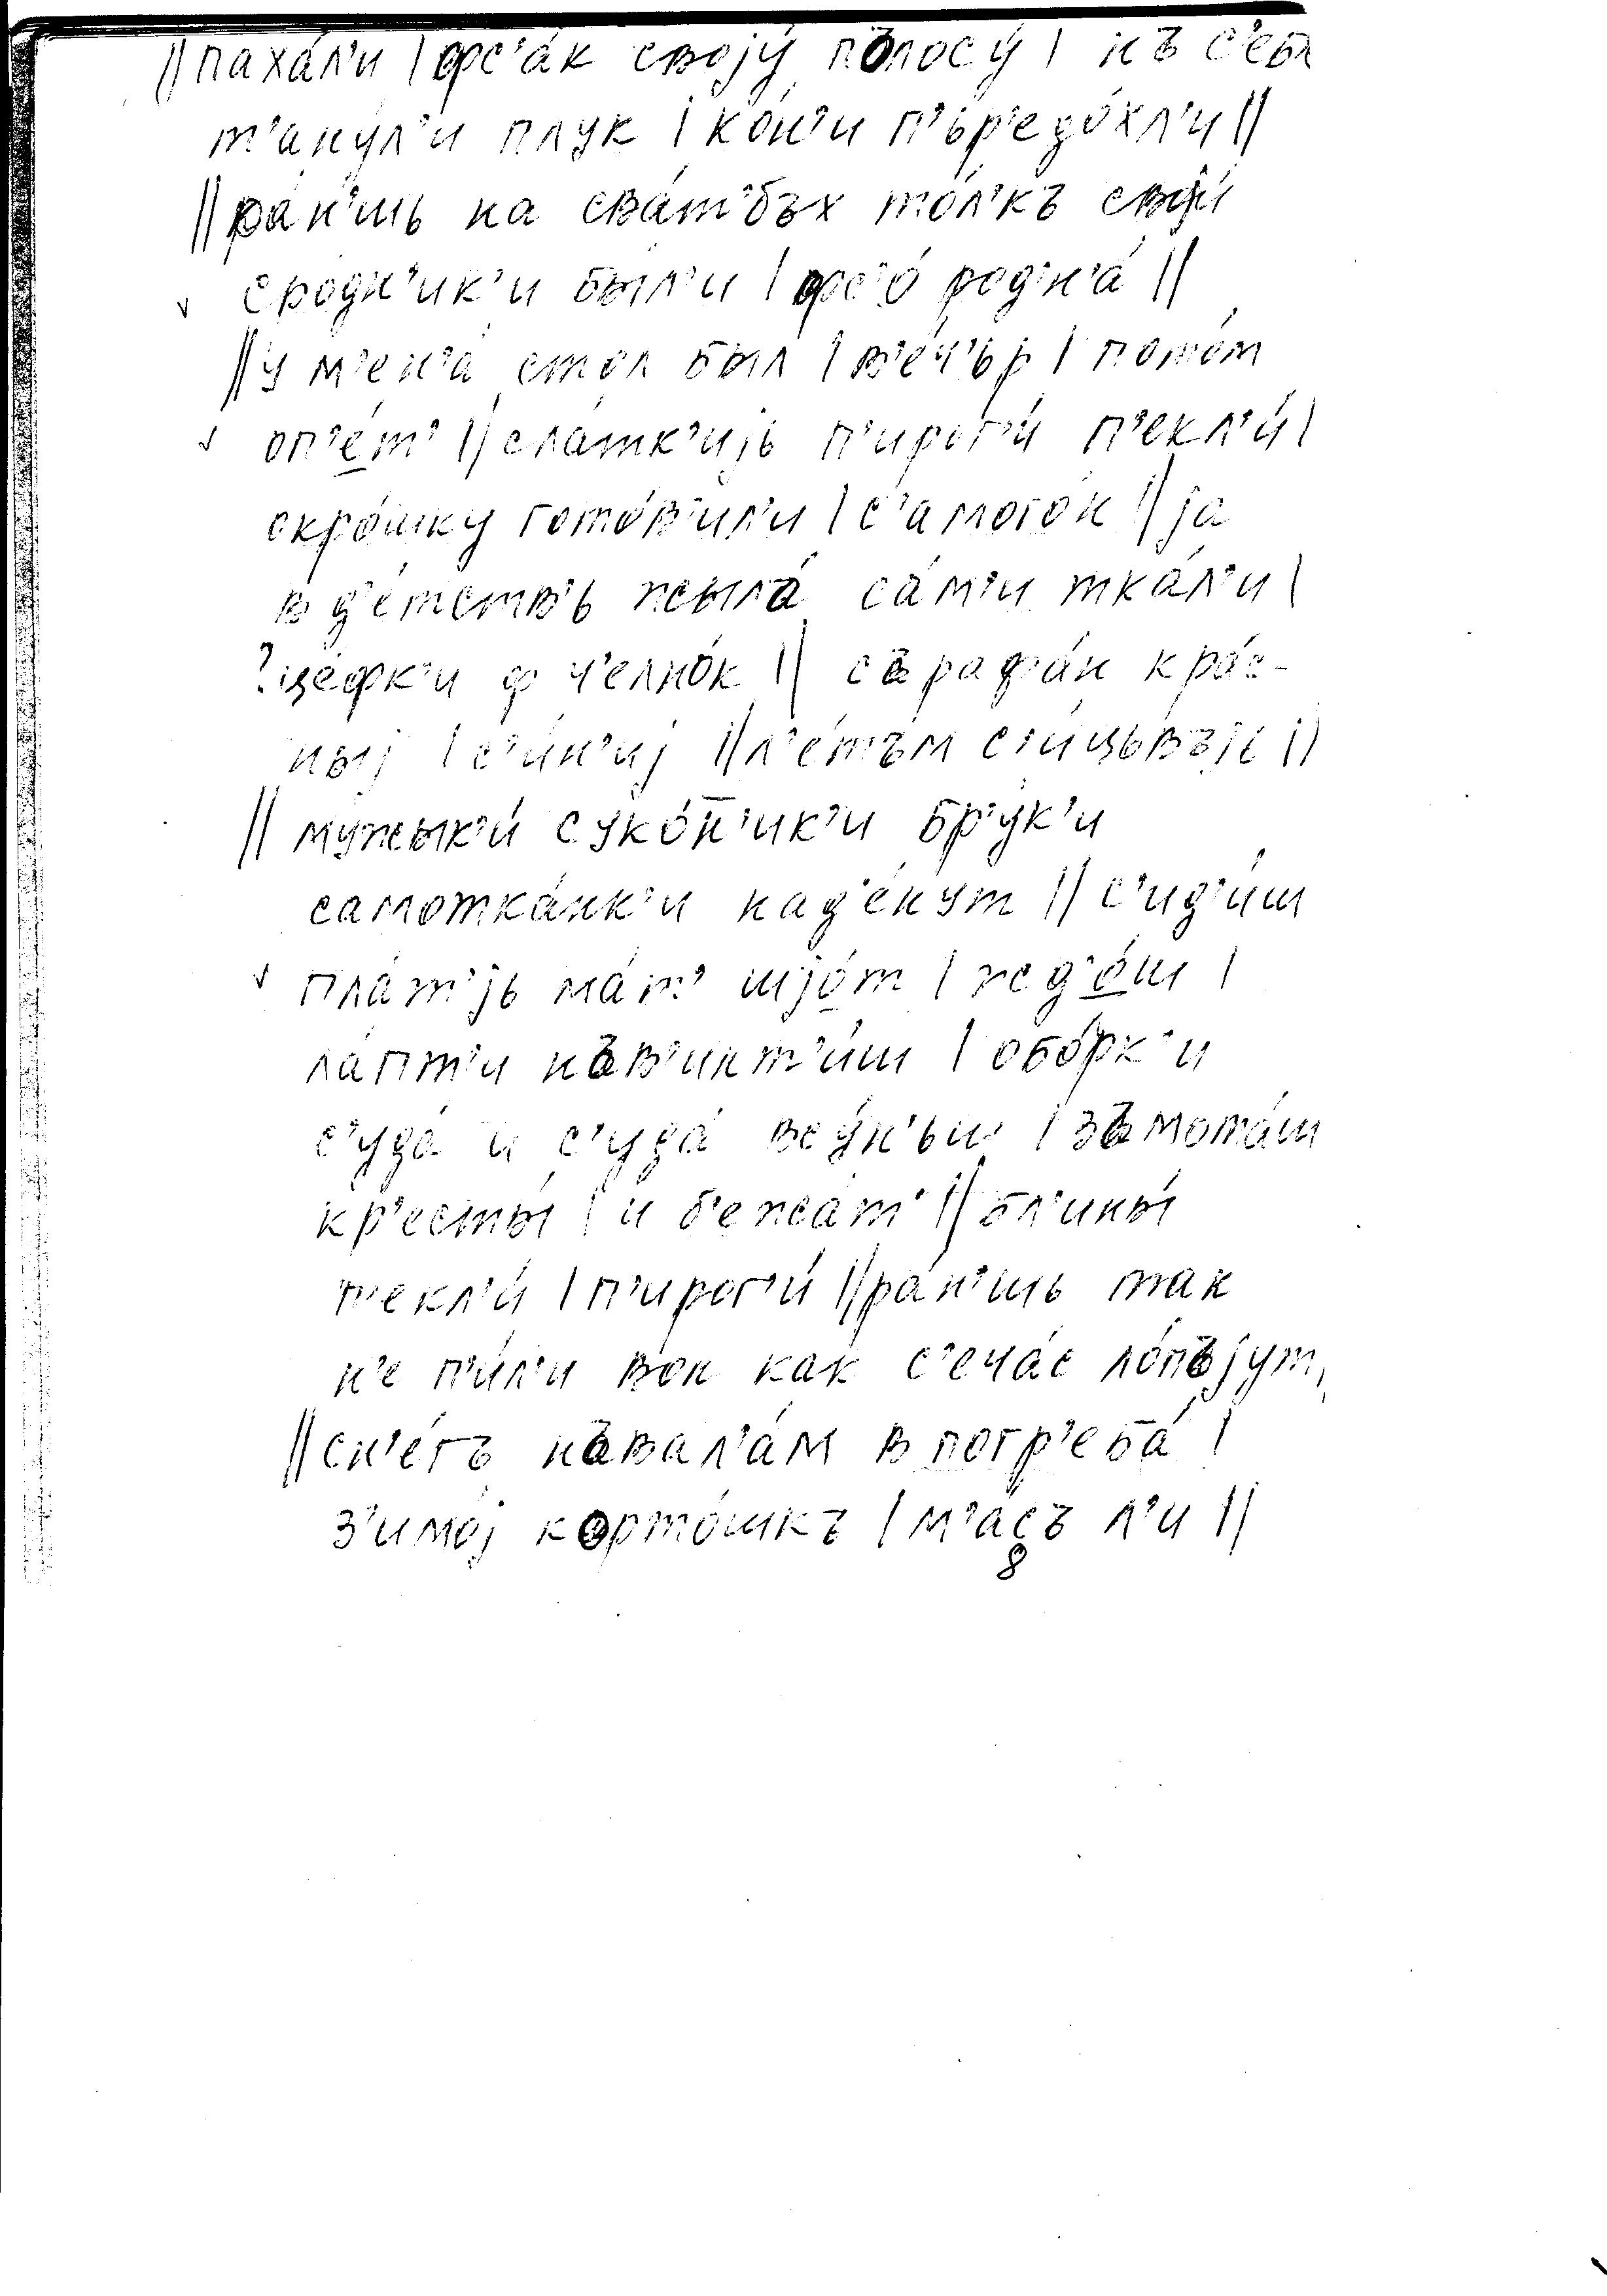 || паха́л'и | фс'а́к своjу́ пълосу́ | нъ с'еб
т'ану́л'и плук | ко́н'и п'ър'едо́хл'и ||
|| ра́н'шь на сва́т'бъх то́л'къ свои́
сро́дн'ик'и был'и | фс'о́ родн'а́ ||
|| у м'ен'а́ стол был | в'е́ч'ър | пото́м
оп'е́т' || сла́тк'иjь п'ирог'и́ п'екл'и́ |
окро́шку гото́в'ил'и | с'амого́н || jа
в д'е́тств'ь жыла́ са́м'и тка́л'и |
? це́фк'и ф ч'елно́к || съраѳа́н кра́с-
ныj | с'и́н'иj || л'е́тъм с'и́цъвъjь ||
|| мужык'и́ суко́н̄'ик'и бр'ук'и
самотка́нк'и над'е́нут || с'ид'и́ш
✓ пла́т'jь ма́т' шjо́т | жд'о́ш |
ла́пт'и нъв'инт'и́ш | обо́рк'и
с'уда́ и с'уда́ всу́н'ьш | зъмота́ш
кр'есты́ | и б'ежа́т' || бл'ины́
п'екл'и́ | п'ирог'и́ || ра́н'шь так
н'е п'и́л'и вон как с'еча́с ло́пъjут,
|| сн'е́гъ нъвал'а́м в погр'еба́ |
з'имо́j корто́шкъ | м'а́съ л'и ||
8